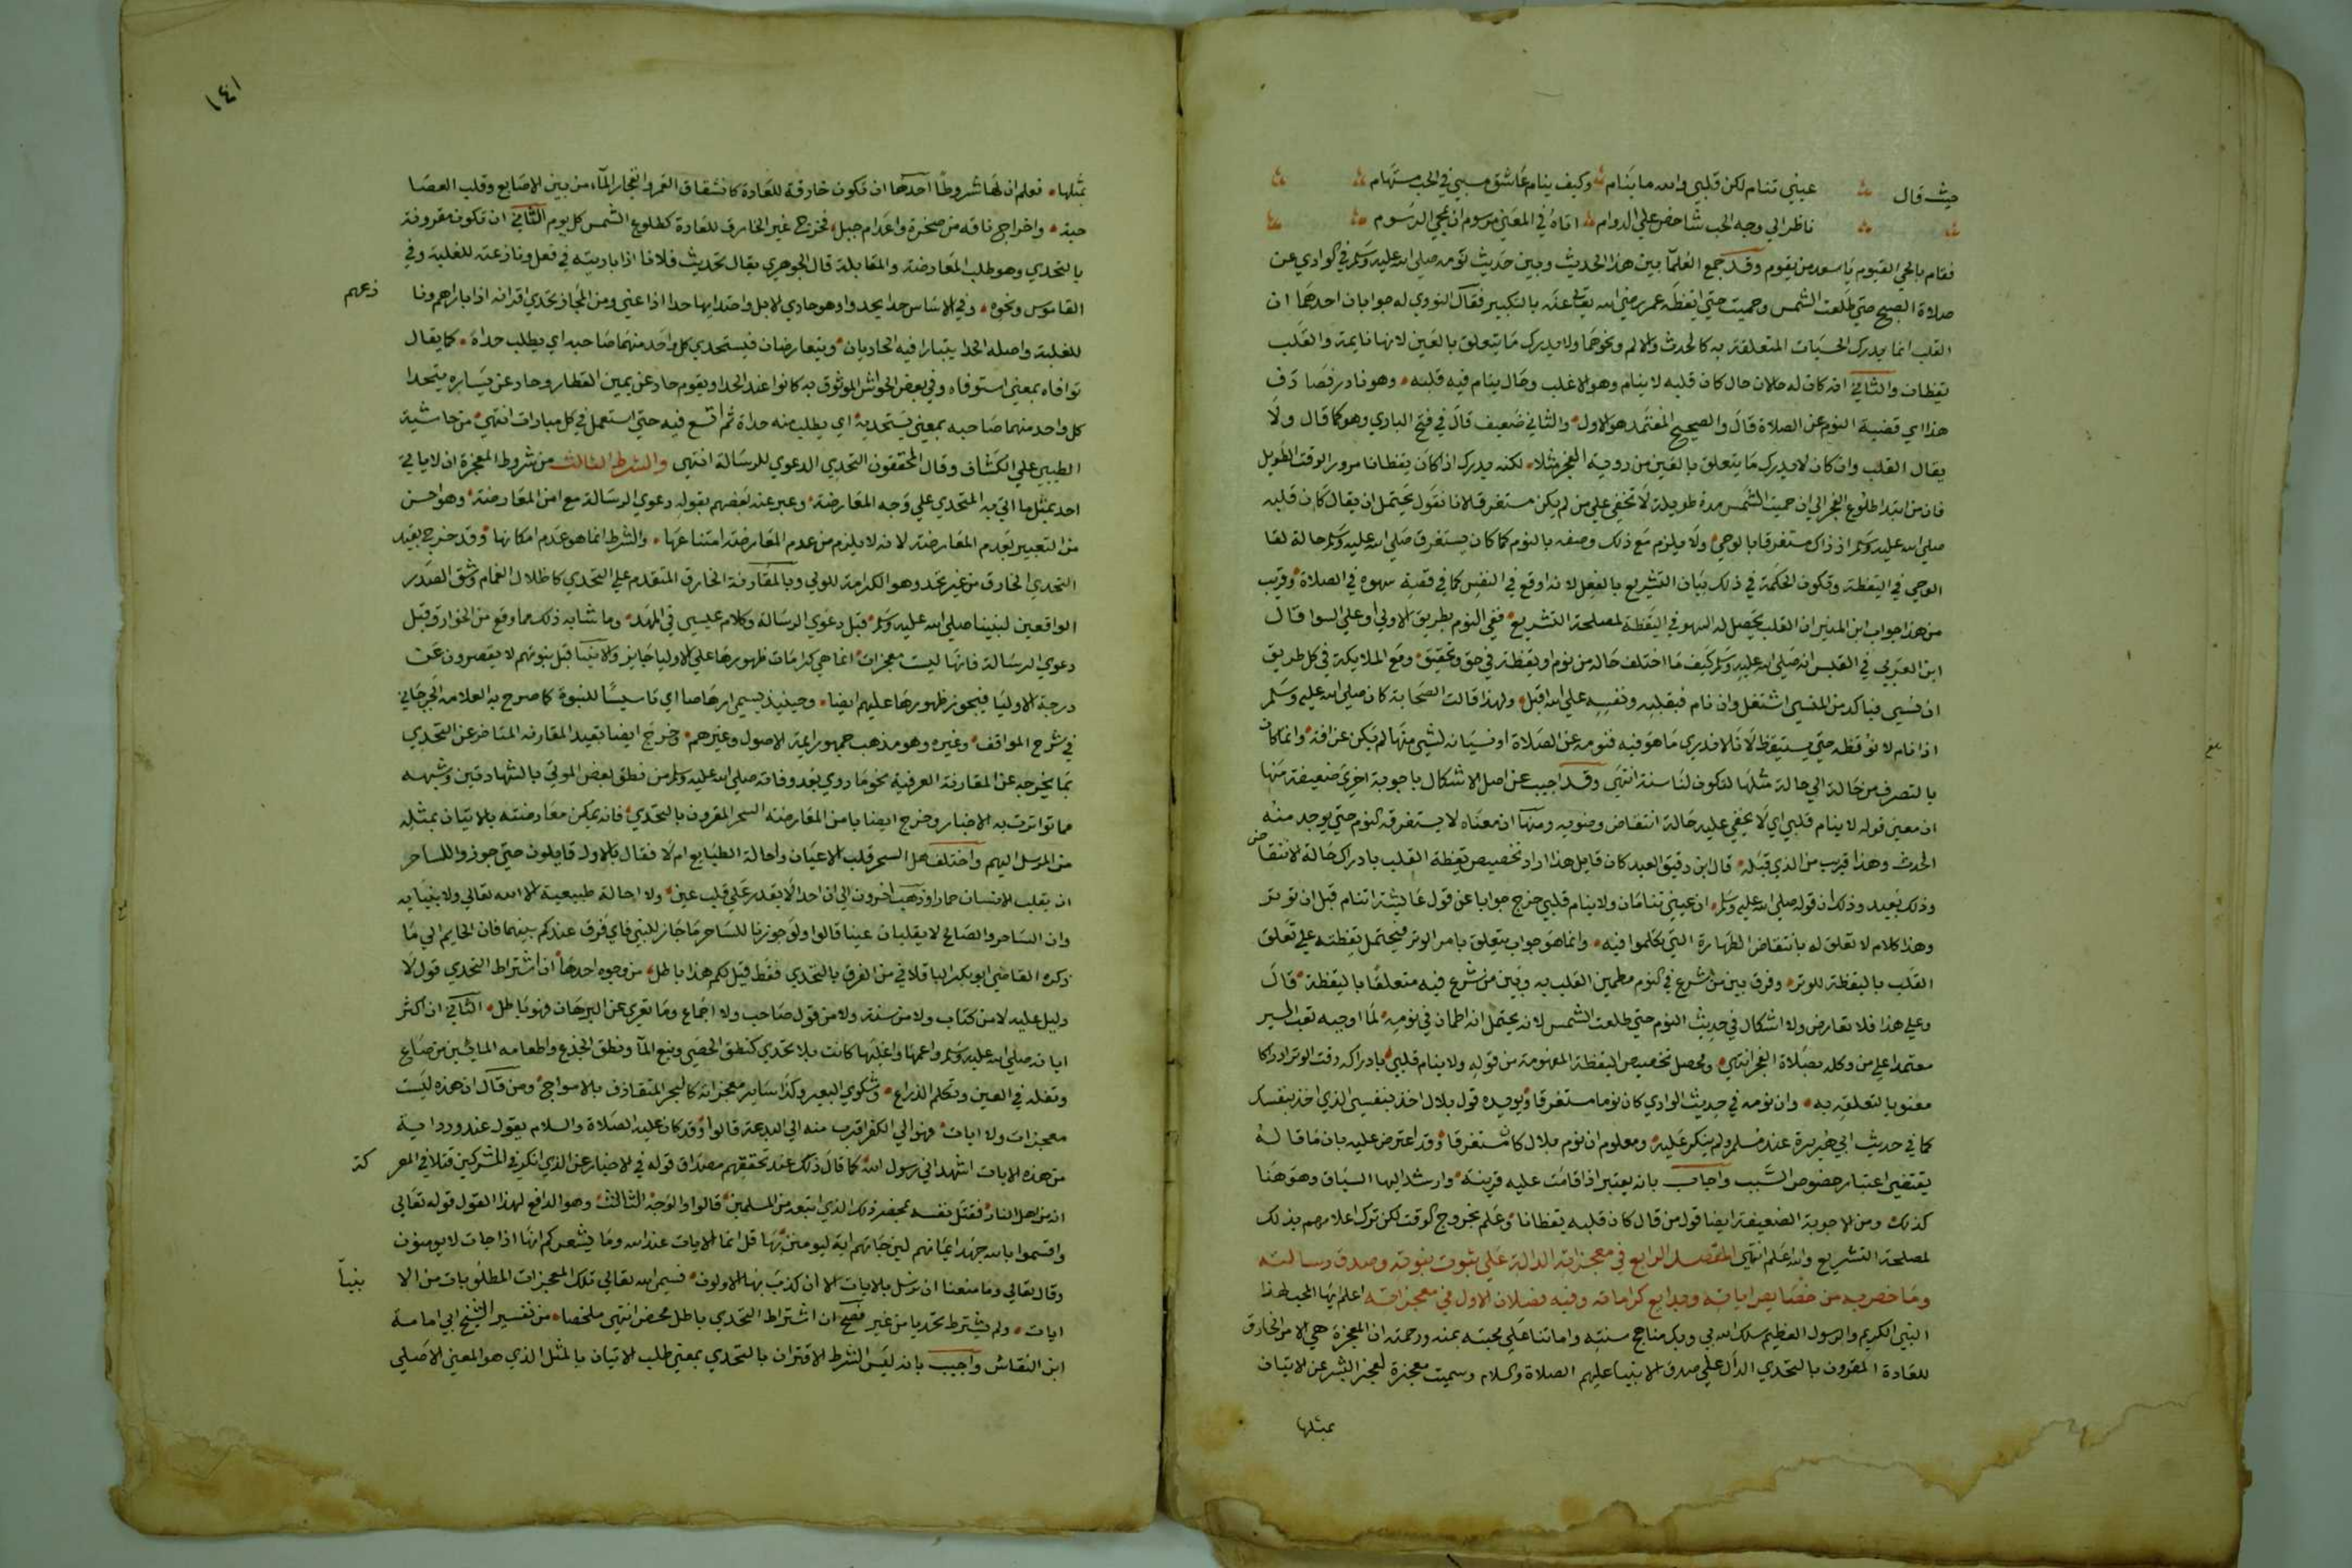 حيث قال عيني تنام لكن قلبي والله ما ينام وكيف ينام عاشق مسبي في الحب مستهام
ناظر الي وجه الحب شاخص علي الدوام اتاه في المعني مرسوم ان يمحي الرسوم
فقام بالحي القيوم يا سعد من يقوم وقد جمع العلما بين هذا الحديث وبين حديث نومه صلي الله عليه وسلم في الوادي عن
صلاة الصبح حتي طلعت الشمس وحميت حتي ايقظه عمر رضي الله تعالي عنه بالتكبير فقال النووي له جوابان احدهما ان
القلب انما يدرك الحسيات المتعلقة به كالحدث والالم ونحوهما ولا يدرك ما يتعلق بالعين لانها نايمة والقلب
يقظان والثاني انه كان له حالان حال كان قلبه لا ينام وهو الاغلب وحال ينام فيه قلبه وهو نادر فصادف
هذا اي قضية النوم عن الصلاة قال والصحيح المعتمد هو الاول والثاني ضعيف قال في فتح الباري وهو كما قال ولا
يقال القلب وان كان لا يدرك ما يتعلق بالعين من روية الفجر مثلا لكنه يدرك اذا كان يقظانا مرور الوقت الطويل
فان من ابتدا طلوع الفجر الي ان حميت الشمس مدة طويلة لا تخفي علي من لم يكن مستغرقا لانا نقول يحتمل ان يقال كان قلبه
صلي الله عليه وسلم اذ ذاك مستغرقا بالوحي ولا يلزم مع ذلك وصفه بالنوم كما كان يستغرق صلي الله عليه وسلم حالة لقا
الوحي في اليقظة وتكون الحكمة في ذلك بيان التشريع بالفعل لانه اوقع في النفس كما في قضية سهوه في الصلاة وقريب
من هذا جواب ابن المنير ان القلب يحصل له السهو في اليقظة لمصلحة التشريع ففي النوم بطريق الاولي او علي السوا قال
ابن العربي في القبس انه صلي الله عليه وسلم كيف ما اختلف حاله من نوم او يقظة في حق وتحقيق ومع الملايكة في كل طريق
ان نسي فباكد من المنسي اشتغل وان نام فبقلبه ونفسه علي الله اقبل ولهذا قالت الصحابة كان صلي الله عليه وسلم
اذا نام لا نوقظه حتي يستيقظ لانا لا ندري ما هو فيه فنومه عن الصلاة او نسيانه لشي منها لم يكن عن افة وانما كان
بالتصرف من حالة الي حالة مثلها لتكون لنا سنة انتهي وقد اجيب عن اصل الاشكال باجوبة اخري ضعيفة منها
ان معني قوله لا ينام قلبي اي لا يخفي عليه حالة انتقاض وضويه ومنها ان معناه لا يستغرقه النوم حتي يوجد منه
الحدث وهذا قريب من الذي قبله قال ابن دقيق العيد كان قايل هذا اراد تخصيص يقظة القلب بادراك حالة الانتقاض
وذلك بعيد وذلك ان قوله صلي الله عليه وسلم ان عيني تنامان ولا ينام قلبي خرج جوابا عن قول عايشة اتنام قبل ان توتر
وهذا كلام لا تعلق له بانتقاض الطهارة التي تكلموا فيه وانما هو جواب يتعلق بامر الوتر فيحتمل يقظته علي تعلق
القلب باليقظة للوتر وفرق بين من شرع في النوم مطمين القلب به وبين من شرع فيه متعلقا باليقظة قال
وعلي هذا فلا تعارض ولا اشكال في حديث النوم حتي طلعت الشمس لانه يحتمل انه اطمان في نومه لما اوجبه تعب السير
معتمدا علي من وكله بصلاة الفجر انتهي ومحصل تخصيص اليقظة المفهومة من قوله ولا ينام قلبي بادراكه وقت الوتر ادراكا
معنويا لتعلقه به وان نومه في حديث الوادي كان نوما مستغرقا ويويده قول بلال اخذ بنفسي الذي اخذ بنفسك
كما في حديث ابي هريرة عند مسلم ولم ينكر عليه ومعلوم ان نوم بلال كان مستغرقا وقد اعترض عليه بان ما قاله
يقتضي اعتبار خصوص السبب واجاب بانه يعتبر اذا قامت عليه قرينة وارشد اليها السياق وهو هنا
كذلك ومن الاجوبة الضعيفة ايضا قول من قال كان قلبه يقظانا وعلم بخروج الوقت لكن ترك اعلامهم بذلك
لمصلحة التشريع والله اعلم انتهي المقصد الرابع في معجزاته الدالة علي ثبوت نبوته وصدق رسالته
وما خص به من خصايص اياته وبدايع كراماته وفيه فصلان الاول في معجزاته اعلم ايها المحب لهذا
النبي الكريم والرسول العظيم سلك الله بي وبك مناهج سنته واماتنا علي محبته بمنه ورحمته ان المعجزة هي الامر الخارق
للعادة المقرون بالتحدي الدال علي صدق الانبيا عليهم الصلاة والسلام وسميت معجزة لعجز البشر عن الاتيان
بمثلها
١٤١
بمثلها فعلم ان لها شروطا احدها ان تكون خارقة للعادة كانشقاق القمر وانفجار الماء من بين الاصابع وقلب العصا
حية واخراج ناقة من صخرة واعدام جبل فخرج غير الخارق للعادة كطلوع الشمس كل يوم الثاني ان تكون مقرونة
بالتحدي وهو طلب المعارضة والمقابلة قال الجوهري يقال تحديث فلانا اذا باريته في فعل ونازعته للغلبة وفي
القاموس ونحوه وفي الاساس حدا يحدوا وهو حادي الابل واحتدابها حدا اذا عني ومن المجاز تحدي اقرانه اذا باراهم ونا
زعهم
للغلبة واصله الحدا يتبارا فيه الحاديان ويتعارضان فيتحدي كل واحد منهما صاحبه اي يطلب حداه كما يقال
توافاه بمعني استوفاه وفي بعض الحواشي الموثوق به كانوا عند الحدا ويقوم حاد عن يمين القطار وحاد عن يساره يتحدا
كل واحد منهما صاحبه بمعني يستحديه اي يطلب منه حداه ثم اتسع فيه حتي استعمل في كل مبارات انتهي من حاشية
الطيبي علي الكشاف وقال المحققون التحدي الدعوي للرسالة انتهي والشرط الثالث من شروط المعجزة ان لا ياتي
احد بمثل ما اتي به المتحدي علي وجه المعارضة وعبر عنه بعضهم بقوله دعوي الرسالة مع امن المعارضة وهو احسن
من التعبير بعدم المعارضة لانه لا يلزم من عدم المعارضة امتناعها والشرط انما هو عدم امكانها وقد خرج بقيد
التحدي الخارق من غير تحد وهو الكرامة للولي وبالمقارنة الخارق المتقدم علي التحدي كاظلال الغمام وشق الصدر
الواقعين لنبينا صلي الله عليه وسلم قبل دعوي الرسالة وكلام عيسي في المهد وما شابه ذلك مما وقع من الخوارق قبل
دعوي الرسالة فانها ليست معجزات انما هي كرامات ظهورها علي الاوليا جايز والانبيا قبل نبوتهم لا يقصرون عن
درجة الاوليا فيجوز ظهورها عليهم ايضا وحينيذ يسمي ارهاصا اي تاسيسا للنبوة كما صرح به العلامة الجرجاني
في شرح المواقف وغيره وهو مذهب جمهور ايمة الاصول وغيرهم وخرج ايضا بقيد المقارنه المتاخر عن التحدي
بما يخرجه عن المقارنة العرفية نحو ما روي بعد وفاته صلي الله عليه وسلم من نطق بعض الموتي بالشهادتين وشبهه
مما تواترت به الاخبار وخرج ايضا بامن المعارضة السحر المقرون بالتحدي فانه يمكن معارضته بالاتيان بمثله
من المرسل اليهم واختلف هل السحر قلب الاعيان واحالة الطبايع ام لا فقال بالاول قايلون حتي جوزوا للساحر
ان يقلب الانسان حمارا وذهب اخرون الي ان احدا لا يقدر علي قلب عين ولا احالة طبيعية الا الله تعالي ولانبيايه
وان الساحر والصالح لا يقلبان عينا قالوا ولو جوزنا للساحر ما جاز للنبي فاي فرق عندكم بينهما فان لجايتم الي ما
ذكره القاضي ابو بكر الباقلاني من الفرق بالتحدي فقط قيل لكم هذا باطل من وجوه احدها ان اشتراط التحدي قول لا
دليل عليه لا من كتاب ولا من سنة ولا من قول صاحب ولا اجماع وما تعري عن البرهان فهو باطل الثاني ان اكثر
اياته صلي الله عليه وسلم واعمها واغلبها كانت بلا تحدي كنطق الحصي ونبع الما ونطق الجذع واطعامه الماتين من صاع
وتفله في العين وتكلم الذراع وشكوي البعير وكذا ساير معجزاته كالبحر المتقاذف بالامواج ومن قال ان هذه ليست
معجزات ولا ايات فهو الي الكفر اقرب منه الي البدعة قالوا وقد كان عليه الصلاة والسلام يقول عند ورود اية
من هذه الايات اشهد اني رسول الله كما قال ذلك عند تحققهم مصداق قوله في الاخبار عن الذي انكي في المشركين قتلا في المعر
كة
انه من اهل النار فقتل نفسه بمحضر ذلك الذي اتبعه من المسلمين قالوا والوجه الثالث وهو الدافع لهذا القول قوله تعالي
واقسموا بالله جهد ايمانهم لين جاتهم اية ليومنن بها قل انما الايات عند الله وما يشعركم انها اذا جات لا يومنون
وقال تعالي وما منعنا ان نرسل بالايات الا ان كذب بها الاولون فسمي الله تعالي تلك المعجزات المطلوبات من الا
نبيآ
ايات ولم يشترط تحديا من غير فصح ان اشتراط التحدي باطل محض انتهي ملخصا من تفسير الشيخ ابي امامة
ابن النقاش واجيب بانه ليس الشرط الاقتران بالتحدي بمعني طلب الاتيان بالمثل الذي هو المعني الاصلي